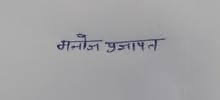 मनोज प्रजापत